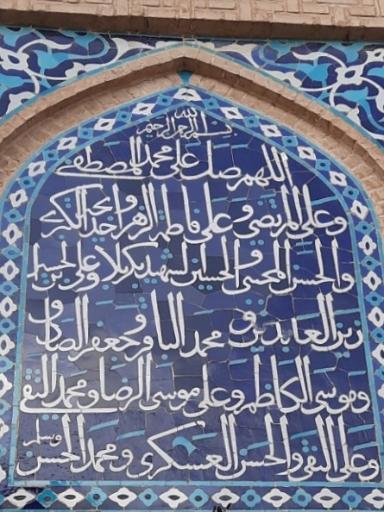 بسم الله الرحمن الرحیم
اللهم صل علی محمد المصطفی
وعلی المرتضی و علی فاطمه الزهرا و خدیجة الکبری
والحسن المجتبی و الحسین الشهید بکربلا و علی الحسین
زین العابدین و محمد الباقر و جعفر الصادق و
وموسی الکاظم و علی موسی الرضا و محمد التقی
وعلی النقی و الحسن العسکری و محمد الحسن